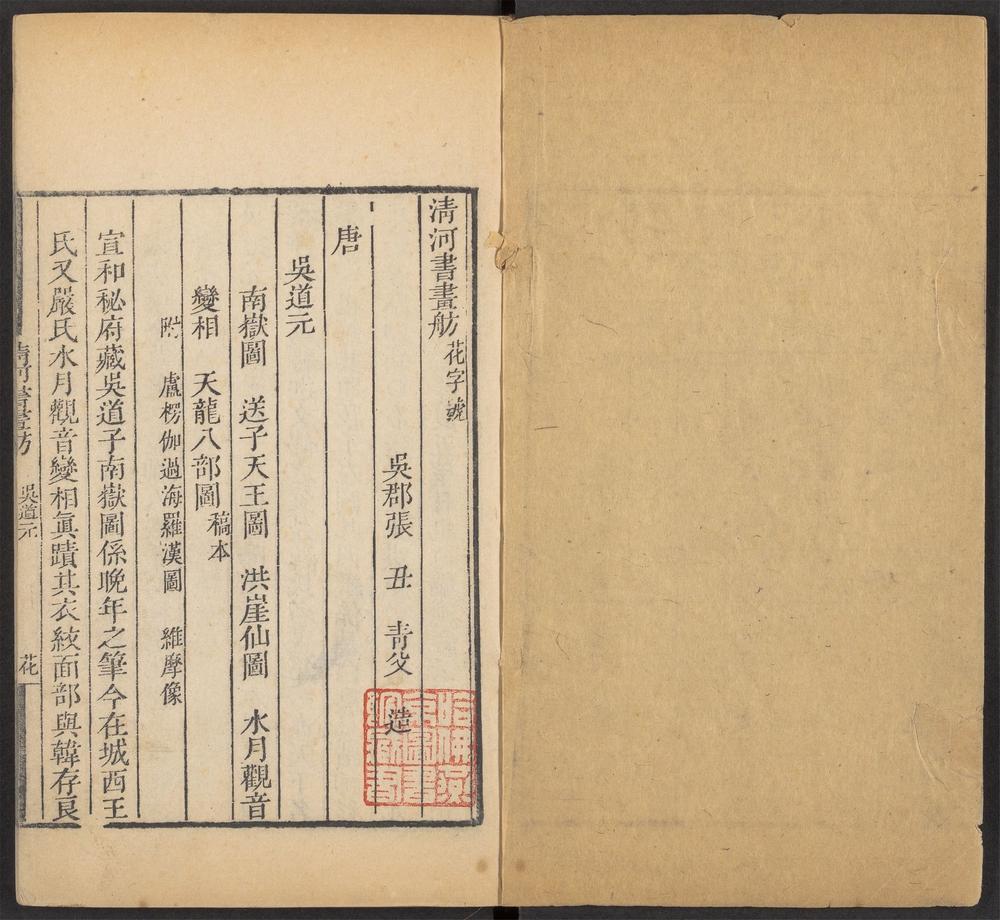 清河書畫舫花字號
吳郡張 丑 青父 造
唐
吳道元
南嶽圖 送子天王圖 洪崖仙圖 水月觀音
變相 天龍八部圖稿本
附 盧楞伽過海羅漢圖 維摩像
宣和秘府藏吳道子南嶽圖係晚年之筆今在城西王
氏又嚴氏水月觀音變相眞蹟其衣紋面部與韓存良
清河書畫舫 吳道元 花
哈佛演京圖書館藏書